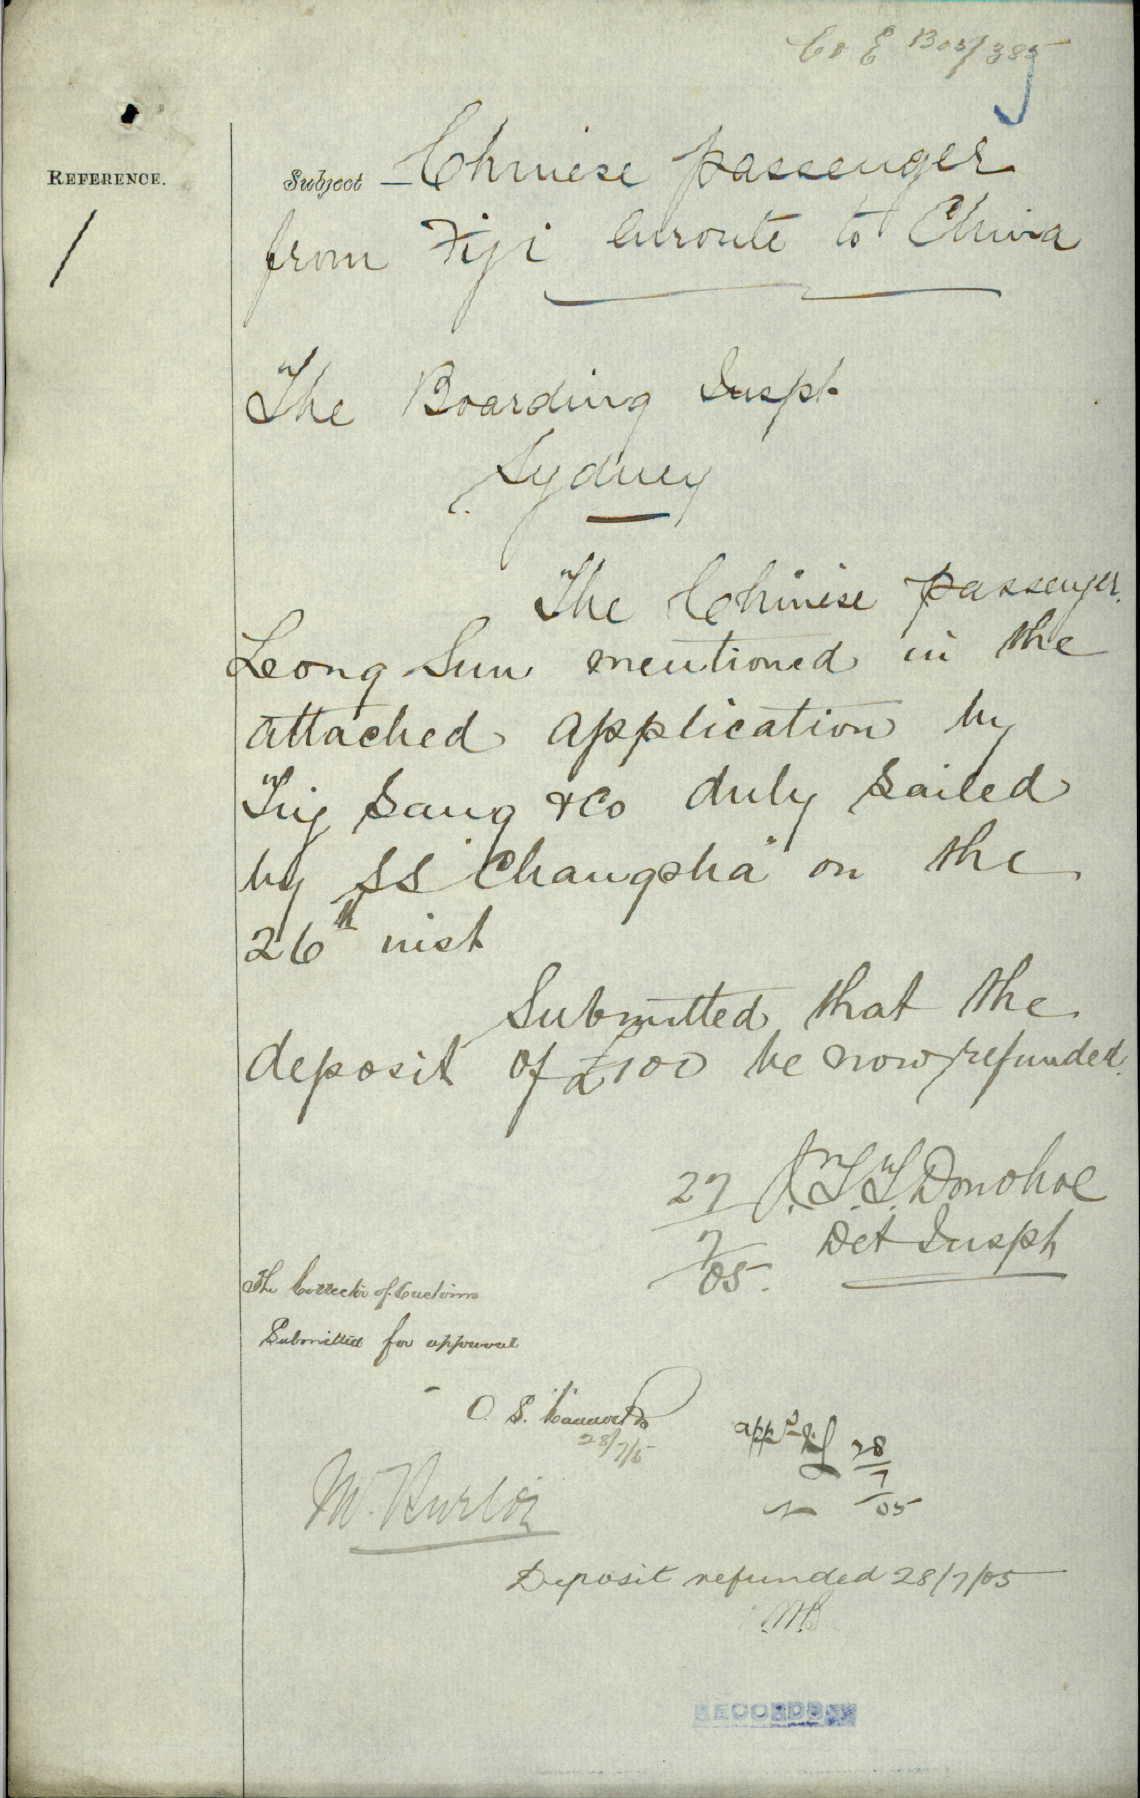 C & E B 05/385
REFERENCE.
Subject - Chinese passenger
from Fiji enroute to China
The Boarding Inspt
Sydney
The Chinese passenger
Leong Sun mentioned in the
attached application by
Tiy Sang & Co duly sailed
by SS "Changsha" on the
26th inst
Submitted that the
deposit of £100 be now refunded.
27 J.T.T. Donohoe
7 Det Inspt
05.
The Collector of Customs
Submitted for approval
28/7/5
appd 28
7
05
Deposit refunded 28/7/05
RECORDS